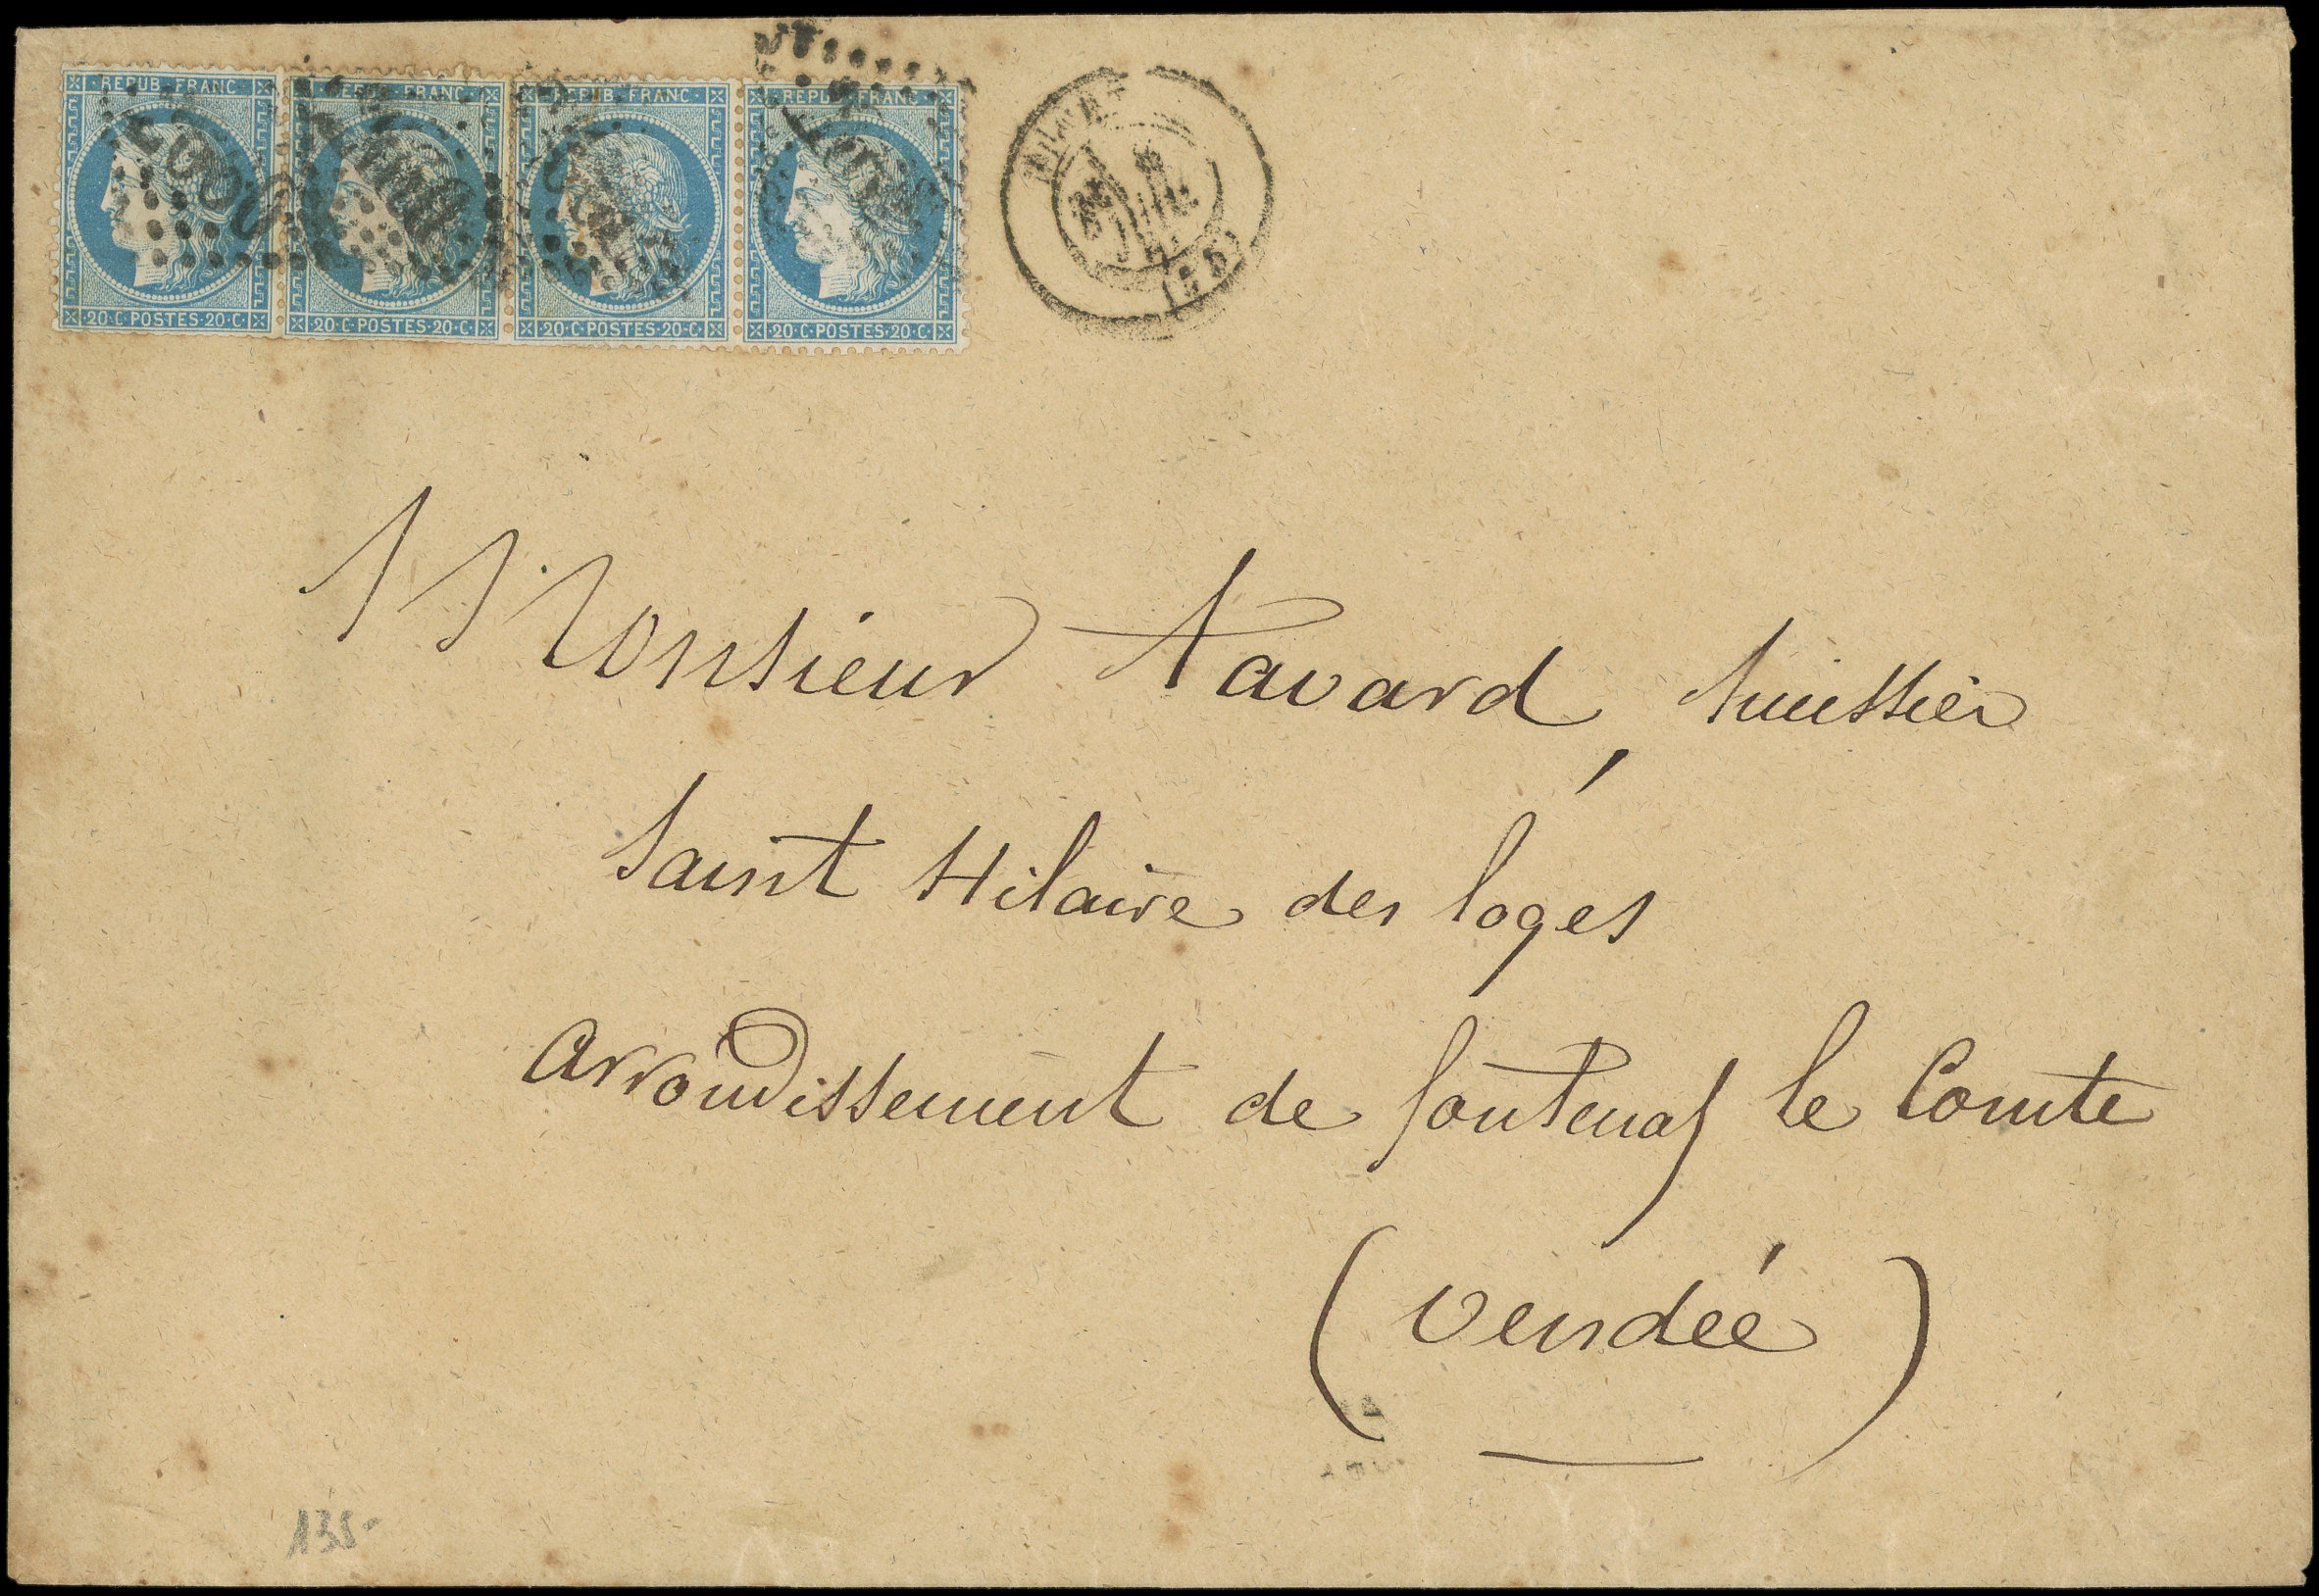 REPUB·FRANC REPUB·FRANC REPUB·FRANC REPUB·FRANC
20·C·POSTES·20·C 20·C·POSTES·20·C 20·C·POSTES·20·C 20·C·POSTES·20·C
Monsieur Navard, huissier
Saint Hilaire des loges
arrondissement de fontenay le Comte
(Vendée)
135-